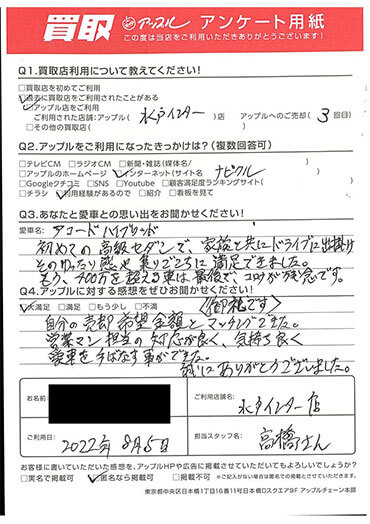 買取 アップル アンケート用紙
この度は当店をご利用いただきありがとうございます!
Q1.買取店利用について教えてください!
□買取店を初めてご利用
☑過去に買取店をご利用されたことがある
☑アップル店をご利用
ご利用された店舗:アップル( 水戸インター )店 アップルへのご売却( 3 回目)
□その他の買取店( )
Q2.アップルをご利用になったきっかけは?(複数回答可)
□テレビCM □ラジオCM □新聞・雑誌(媒体名/ )
□アップルのホームページ ☑インターネット(サイト名 ナビクル )
□Googleクチコミ □SNS □Youtube □顧客満足度ランキングサイト( )
□チラシ ☑利用経験があるので □紹介 □看板を見て
Q3.あなたと愛車との思い出をお聞かせください!
愛車名: アコードハイブリッド
初めての高級セダンで、家族と共にドライブに出掛け
そのゆったり感や乗りごこちに満足できました。
もう、400万を超える車は最後で、コロナが残念です。
Q4.アップルに対する感想をぜひお聞かせください!
☑大満足 □満足 □もう少し □不満 〈御礼です〉
自分の売却希望金額とマッチングできた。
営業マン担当の対応が良く、気持ち良く
愛車を手ばなす事ができた。
誠にありがとうございました。
お名前
ご利用店舗名: 水戸インター店
ご利用日: 2022年 8月5日
担当スタッフ名: 高橋さん
お客様に書いていただいた感想を、アップルHPや広告に掲載させていただいてもよろしいでしょうか?
□実名で掲載可 ☑匿名なら掲載可 □掲載不可 ※ご記入がない場合は匿名での掲載とさせていただきます。
東京都中央区日本橋1丁目16番11号日本橋Dスクエア9F アップルチェーン本部